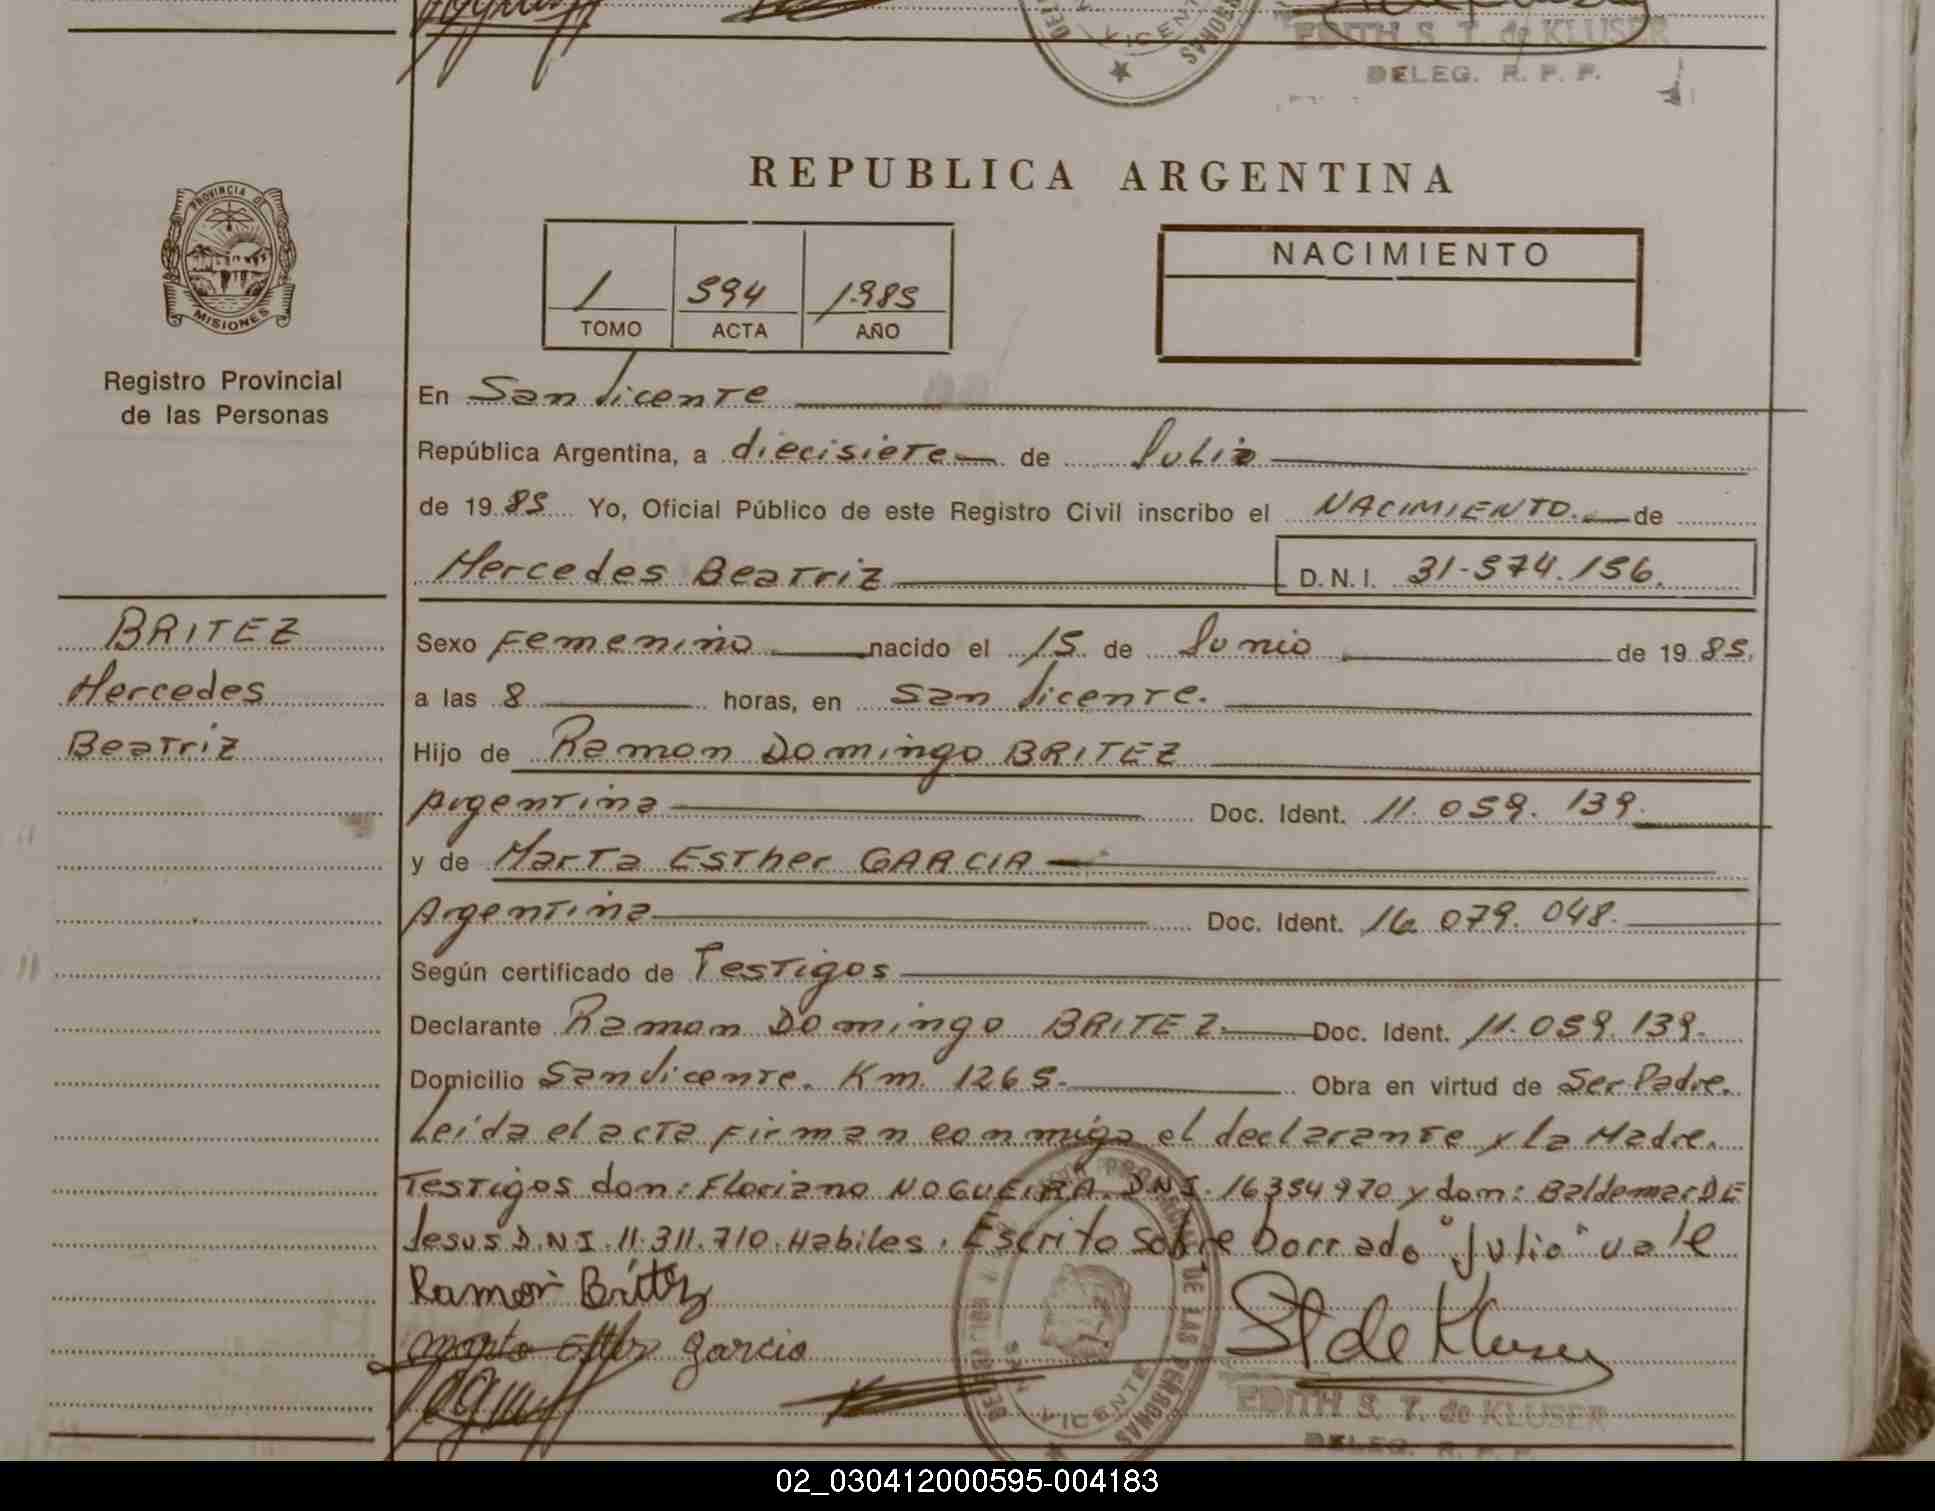 EDITH S. T. de KLUSER
DELEG. R. P. P.
VICENTE
REPUBLICA ARGENTINA
PROVINCIA D
MISIONES
Registro Provincial
de las Personas
1 594 1985
TOMO ACTA AÑO
NACIMIENTO
En San Vicente
República Argentina, a diecisiete de Julio
de 1985 Yo, Oficial Público de este Registro Civil inscribo el NACIMIENTO. de
Mercedes Beatriz D.N.I. 31-574.156.
BRITEZ
Mercedes
Beatriz
Sexo Femenino nacido el 15 de Junio de 1985.
a las 8 horas, en San Vicente.
Hijo de Ramon Domingo BRITEZ
Argentina Doc. Ident. 11.059.139.
y de Marta Esther GARCIA
Argentina Doc. Ident. 16.079.048.
Según certificado de Testigos
Declarante Ramon Domingo BRITEZ. Doc. Ident. 11.059.139.
Domicilio San Vicente. Km. 1265. Obra en virtud de Ser Padre.
Leída el acta firman conmigo el declarante y la Madre.
Testigos don: Floriano NOGUEIRA. DNI. 16354970 y dom: Baldemar DE
Jesus D.N.I. 11.311.710. Habiles. Escrito sobre borrado "Julio" vale
Ramon Britez
Marta Esther Garcia
ST de Kluser
EDITH S. T. de KLUSER
DELEG. R. P. P.
DE LAS PERSONAS
VICENTE
02_030412000595-004183